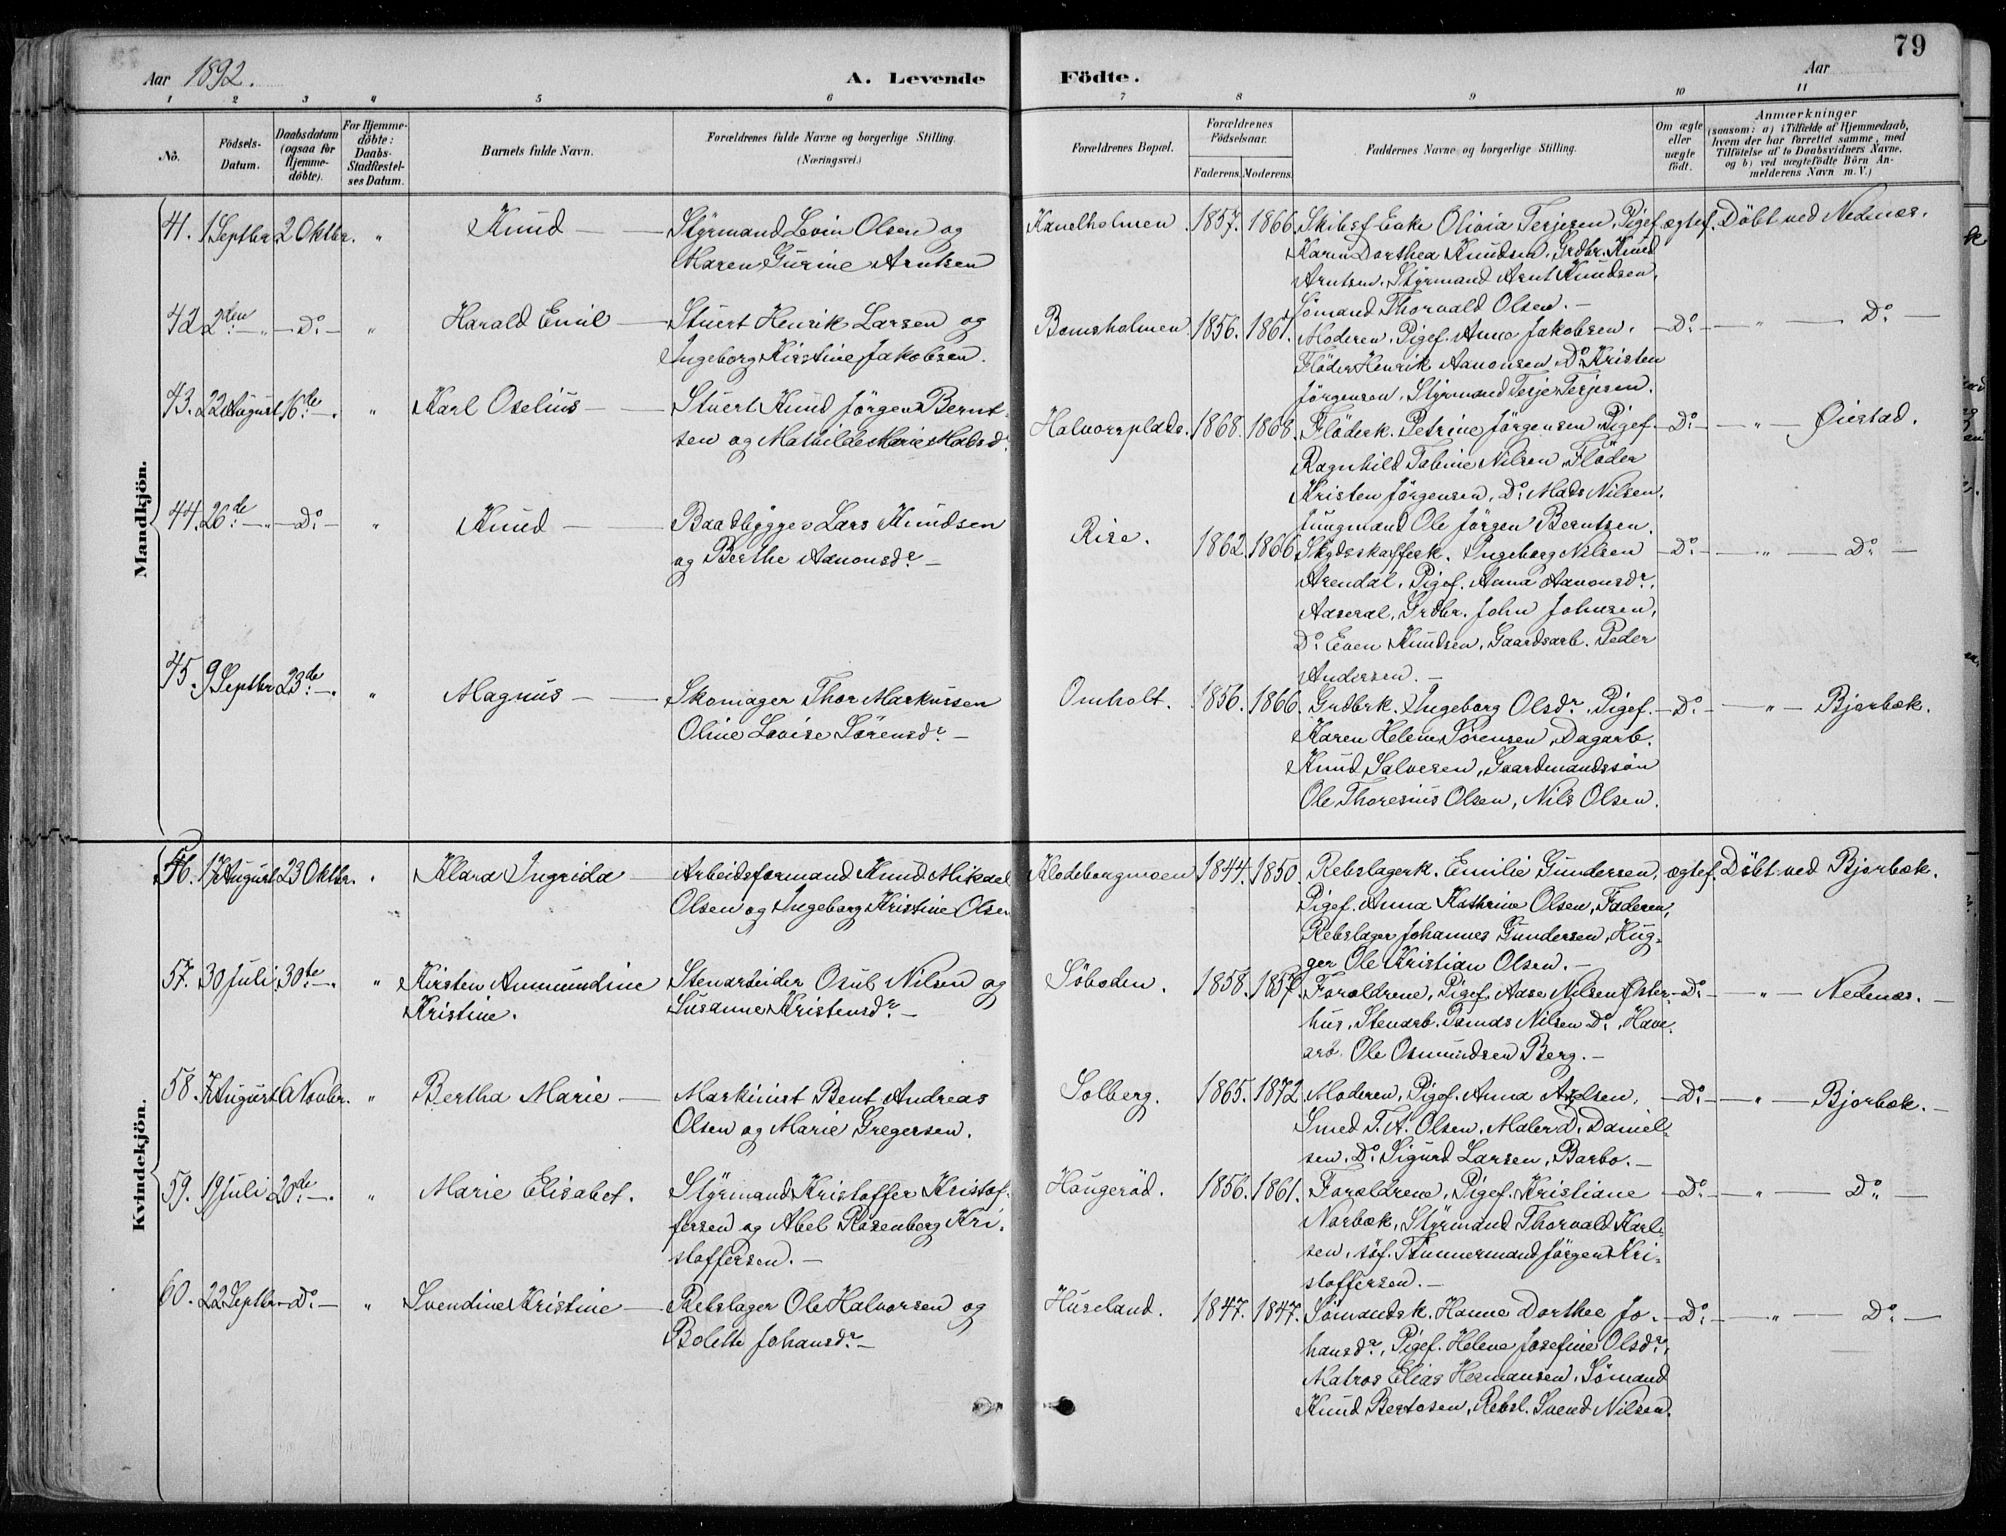 79
Aar 1892.
A. Levende
Födte.
Aar
1 2 3 4 5 6
7 8 9 10 11
No.
Födsels-
Datum.
Daabsdatum
(ogsaa for
Hjemme-
döbte).
For Hjemme-
döbte:
Daabs-
Stadfæstel-
ses Datum.
Barnets fulde Navn.
Forældrenes fulde Navne og borgerlige Stilling.
(Næringsvei.)
Forældrenes Bopæl.
Forældrenes
Födselsaar.
Faderens. Moderens.
Faddernes Navne og borgerlige Stilling.
Om ægte
eller
uægte
födt.
Anmærkninger
(saasom: a) i Tilfælde af Hjemmedaab,
hvem der har forrettet samme, med
Tilföielse af to Daabsvidners Navne,
og b) ved uægtefödte Börn An-
melderens Navn m. V.)
Mandkjön.
41. 1 Septbr. 2 Oktbr. " Knud — Styrmand Levin Olsen og
Maren Gurine Arntsen
Kanelholmen. 1857. 1866. Skibsf. Enke Olivia Terjesen, Pigef. ægtef. Döbt ved Nedenæs.
Karen Dorthea Knudsen, Grdbr. Knud
Arntsen, Styrmand Arnt Knudsen,
Sömand Thorvald Olsen. —
42. 2den — Do — " Harald Emil — Stuert Henrik Larsen og
Ingeborg Kirstine Jakobsen.
Bomsholmen. 1856. 1861. Moderen, Pigef. Anne Jakobsen, — Do — " — Do —
Flöder Henrik Aanonsen, Do Kristen
Jörgensen, Styrmand Terje Terjesen.
43. 22 August 16de — " Karl Oselius — Stuert Knud Jörgen Bernt-
sen og Mathilde Marie Madsdr
Halvorsplads. 1868. 1868. Fløderk. Petrine Jörgensen, Pigef. — Do — " — Øiestad.
Ragnhild Tobine Nilsen, Flöder
Kristen Jörgensen, Do Mads Nilsen,
Jungmand Ole Jörgen Berntsen.
44. 26de — Do — " Knud — Baadbygger Lars Knudsen
og Berthe Aanonsdr —
Rise. 1862. 1866. Skydsskafferk. Ingeborg Nilsen — Do — " — Do —
Arendal, Pigef. Anna Aanonsdr,
Aaseral, Grdbr. John Johnsen,
Do Even Knudsen, Gaardsarb. Peder
Andersen. —
45. 9 Septbr 23de — " Magnus — Skomager Thor Markussen
Oline Lovise Sörensdr —
Omholt. 1856. 1866. Grdbrk. Ingeborg Olsdr, Pigef. — Do — " — Bjorbæk.
Karen Helene Sörensen, Dagarb.
Knud Salvesen, Gaardmandssön
Ole Thoresius Olsen, Nils Olsen.
Kvindekjön.
56. 17 August 23 Oktbr. " Klara Ingrida — Arbeidsformand Knud Mikael
Olsen og Ingeborg Kristine Olsen
Klodeborgmoen 1844. 1850. Rebslagerk. Emilie Gundersen, ægtef. Döbt ved Bjorbæk.
Pigef. Anna Kathrine Olsen, Faderen,
Rebslager Johannes Gundersen, Hug-
ger Ole Kristian Olsen. —
57. 30 Juli 30te — " Kirsten Ammundine Stenarbeider Osub Nilsen og
Kristine. Susanne Kristensdr —
Söboden. 1858. 1857. Forældrene, Pigef. Aase Nilsen Øster- — Do — " — Nedenæs. —
hus, Stenarb. Nilsen Do, Have-
arb. Ole Osmundsen Berg. —
58. 7 August 6 Novbr. " Bertha Marie — Maskinist Bent Andreas
Olsen og Marie Gregersen.
Solberg. 1865. 1872 Moderen, Pigef. Anna Axelsen, — Do — " — Bjorbæk. —
Smed T. A. Olsen, Maler D. Daniel-
sen, Do Sigurd Larsen, Barbo. —
59. 19 Juli 20de — " Marie Elisabet. Styrmand Kristoffer Kristof-
fersen og Abel Rosenberg Kri-
stoffersen. —
Haugeröd. 1856. 1861. Forældrene, Pigef. Kristiane — Do — " — Do —
Norbæk, Styrmand Thorvald Karl-
sen, söf. Tömmermand Jörgen Kri-
stoffersen. —
60. 22 Septbr — Do — " Svendine Kristine — Rebslager Ole Halvorsen og
Bolette Johansdr —
Huseland. 1847. 1847. Sömandsk. Hanne Dorthee Jo- — Do — " — Do —
hansdr, Pigef. Helene Josefine Olsdr,
Matros Elias Hermansen, Sömand
Knud Bertosen, Rebsl. Svend Nilsen.